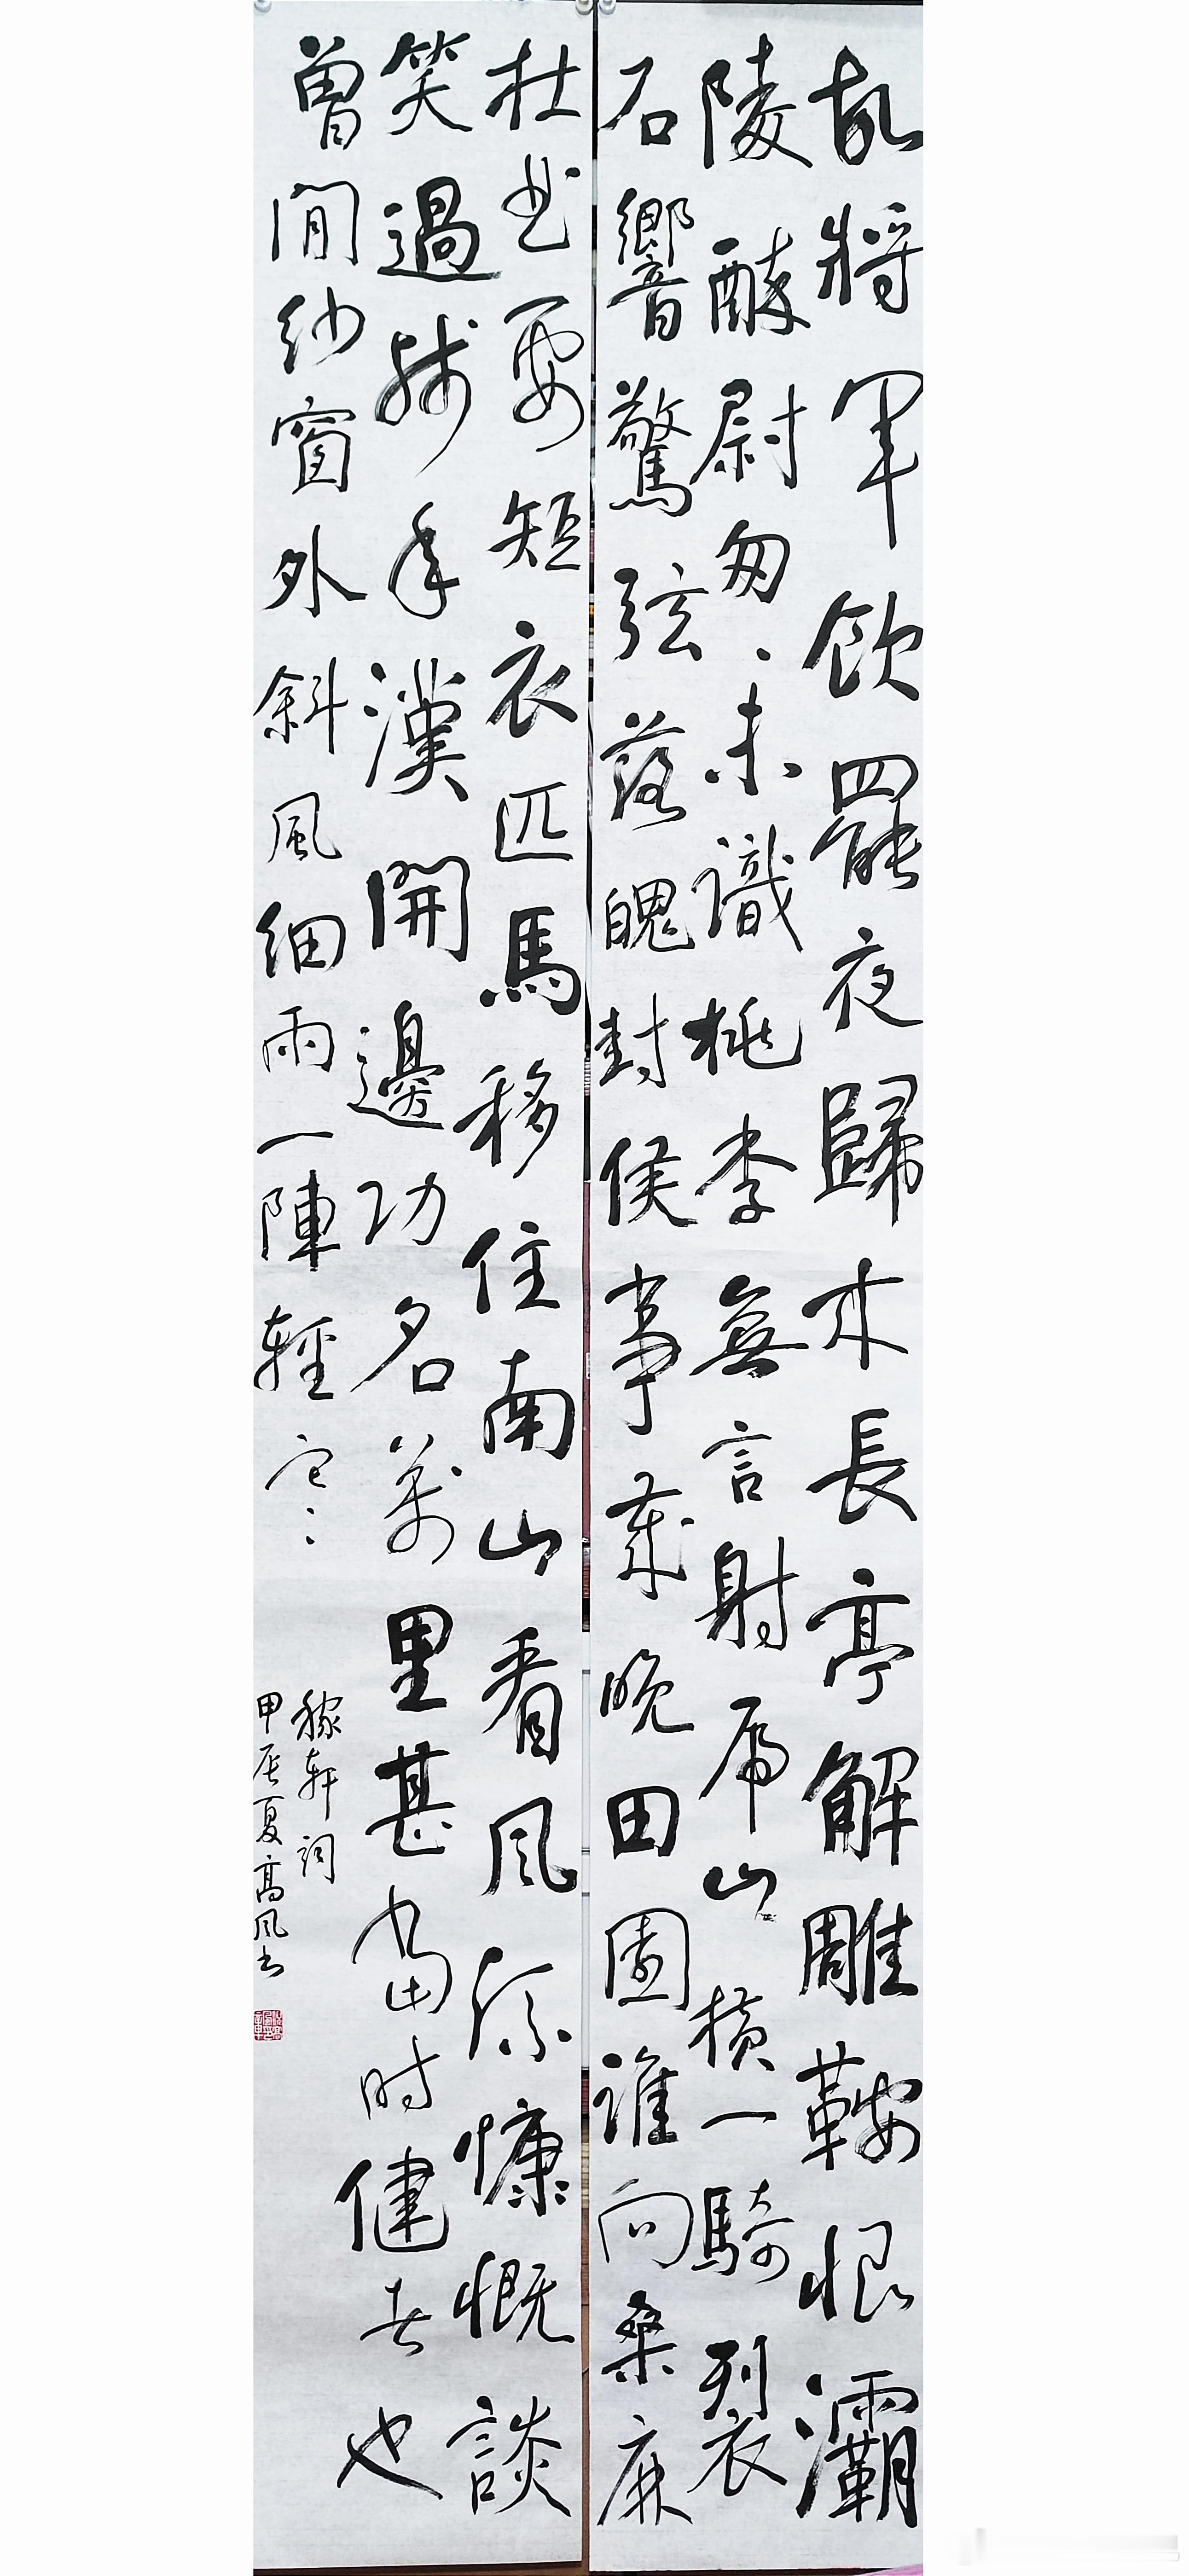 故將軍飲罷夜歸来長亭解雕鞍恨灞
陵醉尉匆、未識桃李無言射虎山横一騎裂
石響驚弦落魄封侯事歲晚田園誰向桑麻
杜曲要短衣匹馬移住南山看风流慷慨談
笑過殘年漢開邊功名萬里甚當时健者也
曾閒紗窗外斜風細雨一陣輕寒
稼軒詞
甲辰夏高风书